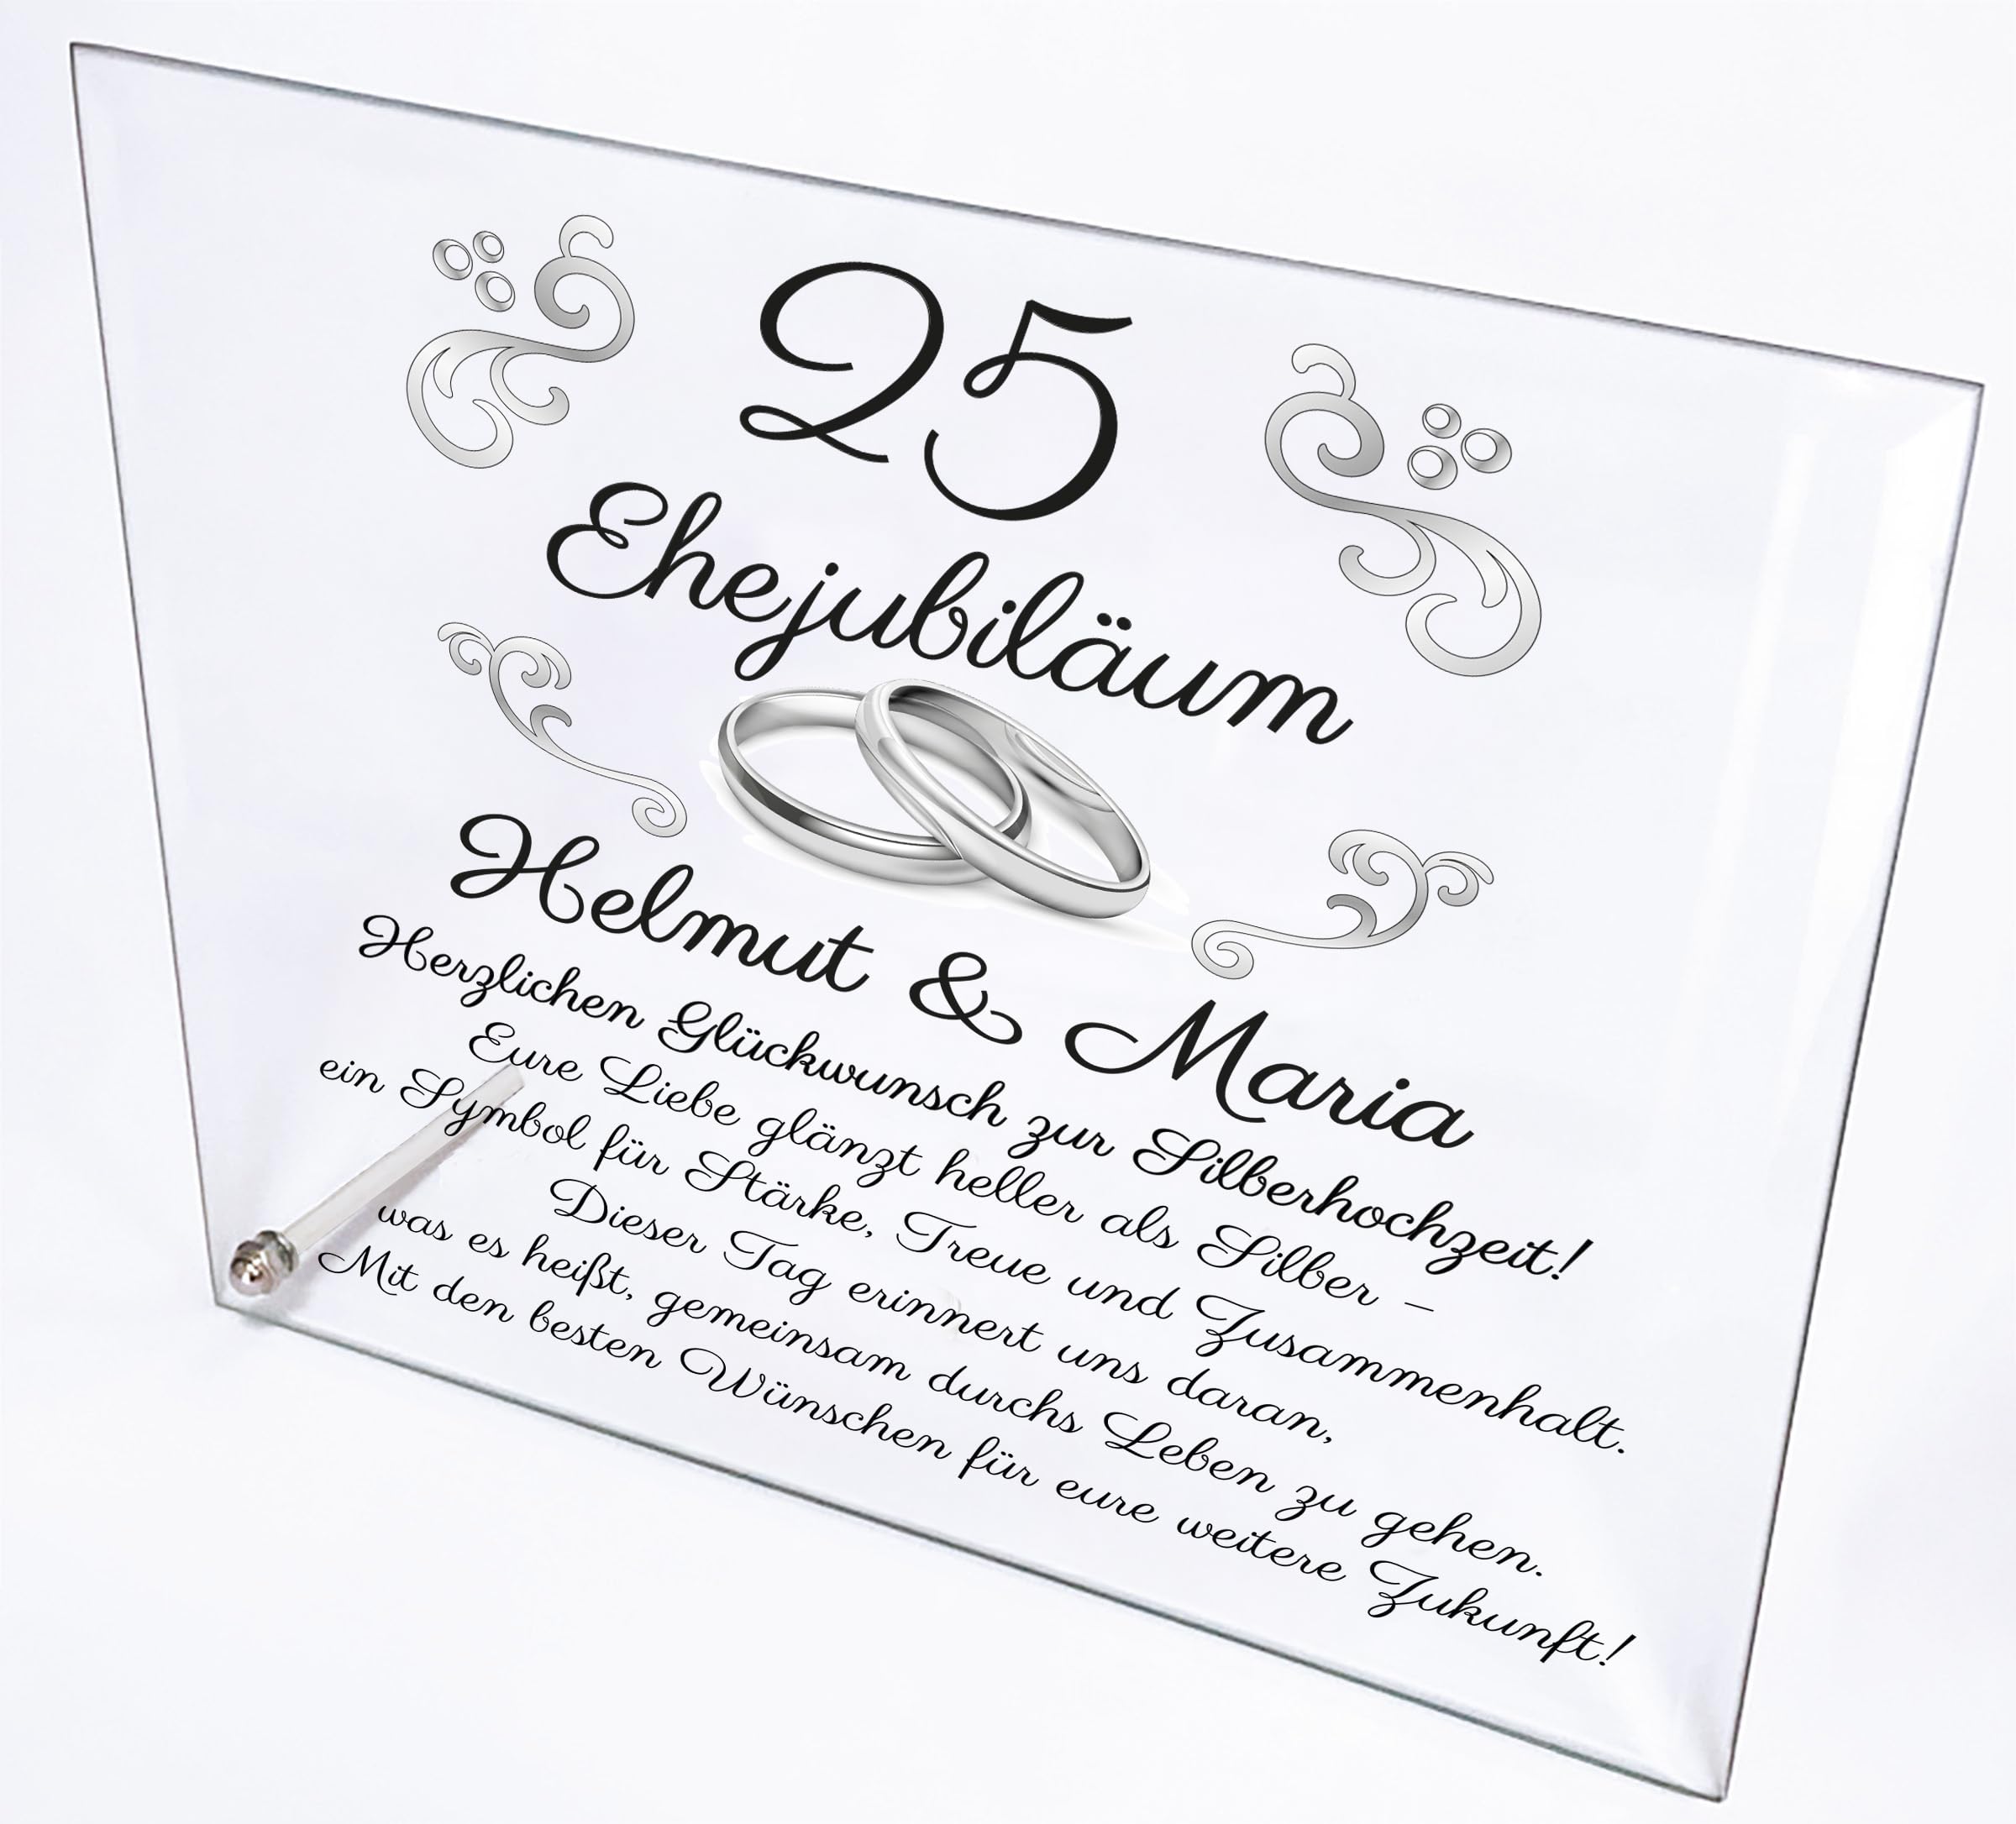 25
Ehejubiläum
Helmut & Maria
Herzlichen Glückwunsch zur Silberhochzeit!
Eure Liebe glänzt heller als Silber –
ein Symbol für Stärke, Treue und Zusammenhalt.
Dieser Tag erinnert uns daran,
was es heißt, gemeinsam durchs Leben zu gehen.
Mit den besten Wünschen für eure weitere Zukunft!